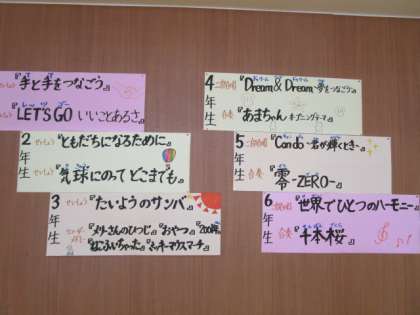 『手と手をつなごう』
『LET'S GO いいことあるさ』
2年生
せいしょう『ともだちになるために』
せいしょう『気球にのってどこまでも』
3年生
せいしょう『たいようのサンバ』
『メリーさんのひつじ』『おやつ』
『ねこふんじゃった』『ミッキーマウスマーチ』
4年生
二部合唱『Dream&Dream〜夢をつなごう』
合奏『あまちゃん オープニングテーマ』
5年生
二部合唱『Cando-君が輝くとき-』
合奏『零-ZERO-』
6年生
二部合唱『世界でひとつのハーモニー』
合奏『千本桜』